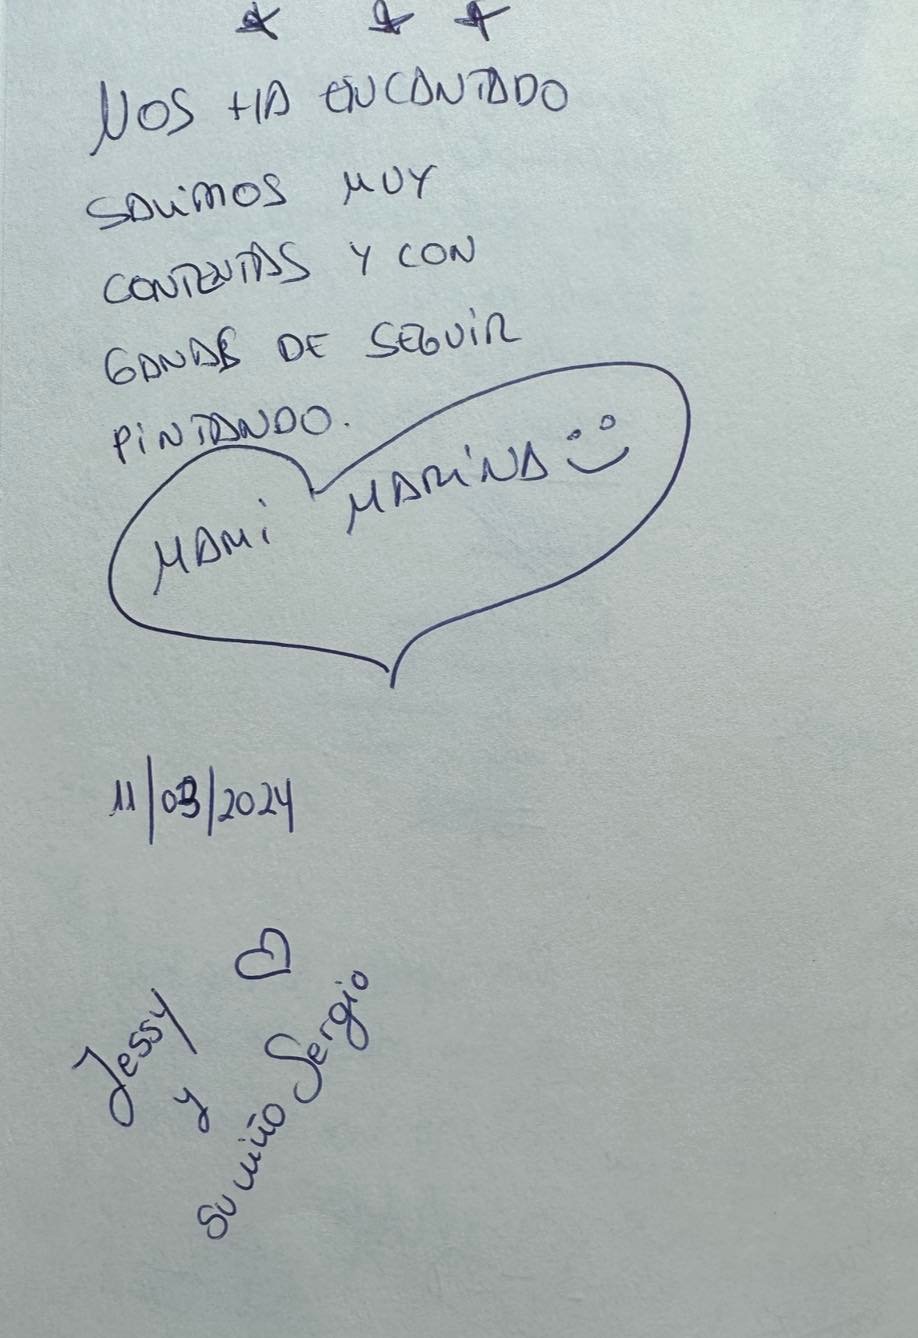 NOS HA ENCANTADO
SALIMOS MUY
CONTENTAS Y CON
GANAS DE SEGUIR
PINTANDO.
MAMI MARINA
11/03/2024
Jessy
y
su niño Sergio